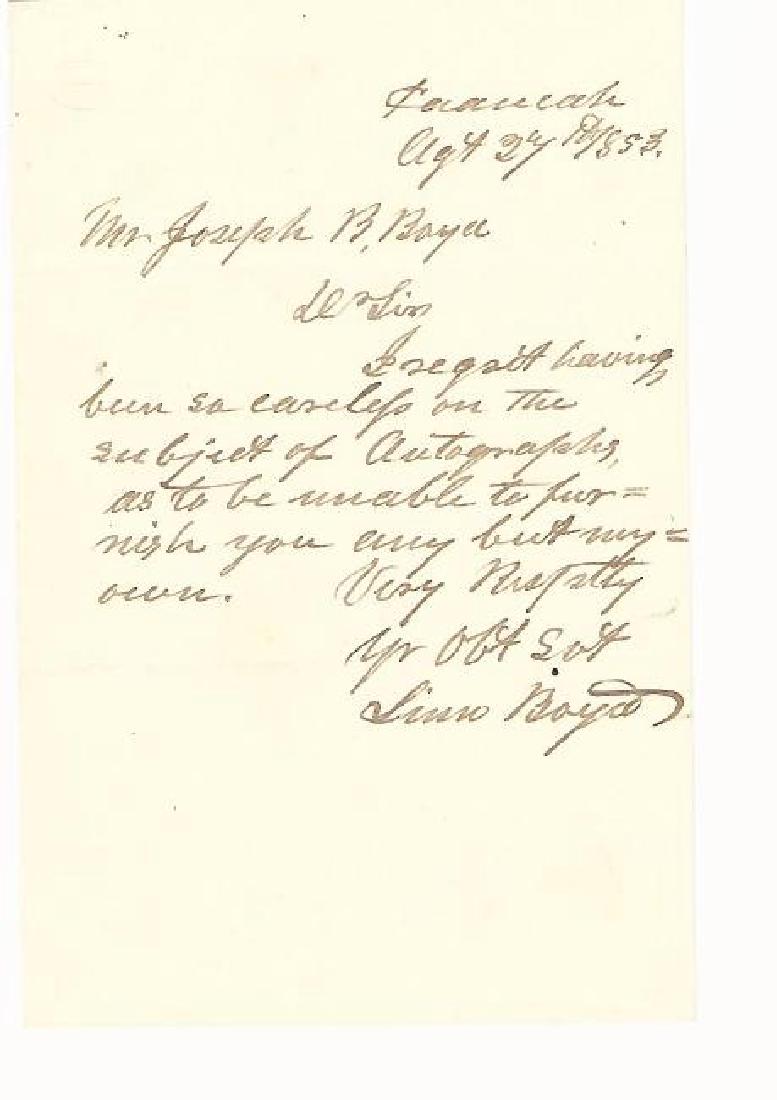 Paducah
Agt 27th 1853.
Mr. Joseph B, Boyd
Dr Sir
I regret having
been so careless on the
subject of Autographs,
as to be unable to fur=
nish you any but my=
own. Very Respctly
Yr Obt Svt
Linn Boyd